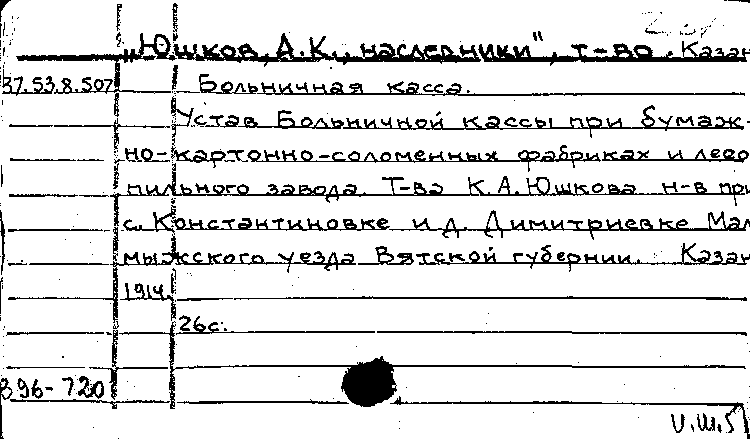 „Юшков, А.К., наследники", т-во. Казан
37.53.8.507 Больничная касса.
Устав Больничной кассы при бумаж-
но-картонно-соломенных фабриках и лесо
пильного завода. Т-ва К.А.Юшкова н-в при
с. Константиновке и д. Димитриевке Мал
мыжского уезда Вятской губернии. Казан
1914.
26с.
896-720